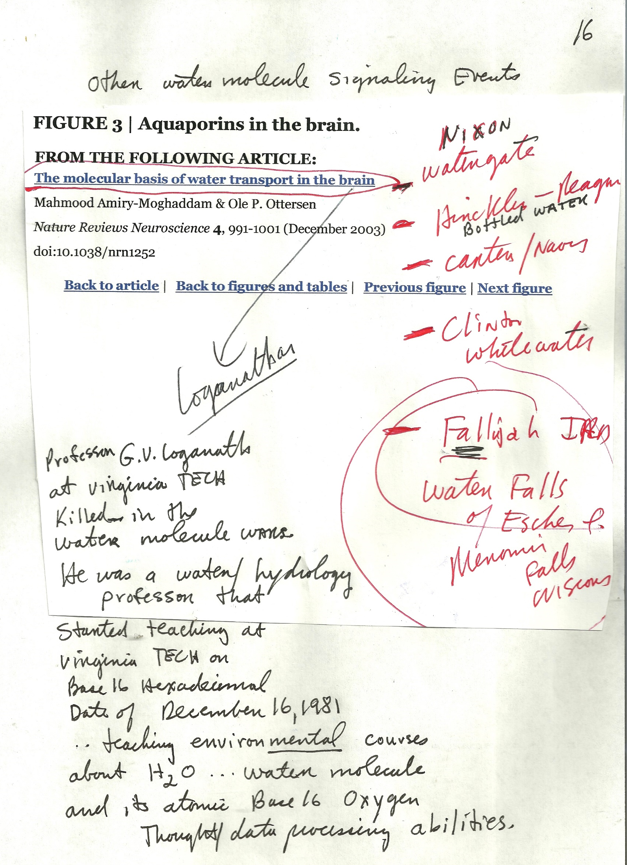 16
Other water molecule Signaling Events
FIGURE 3 | Aquaporins in the brain.
FROM THE FOLLOWING ARTICLE:
The molecular basis of water transport in the brain
Mahmood Amiry-Moghaddam & Ole P. Ottersen
Nature Reviews Neuroscience 4, 991-1001 (December 2003)
doi:10.1038/nrn1252
Back to article | Back to figures and tables | Previous figure | Next figure
NIXON
watergate
Hinckley - Reagan
Bottled WATER
carter /
Clinton
whitewater
Fallijah
Water Falls
of Escher
Falls
Loganathan
Professor G.V. Loganath
at Virginia TECH
Killed in the
water molecule wars
He was a water/hydiology
professor that
Started teaching at
Virginia TECH on
Base 16 Hexadecimal
Date of December 16, 1981
.. teaching environmental courses
about H2O ... water molecule
and its atomic Base 16 Oxygen
Thought/data processing abilities.